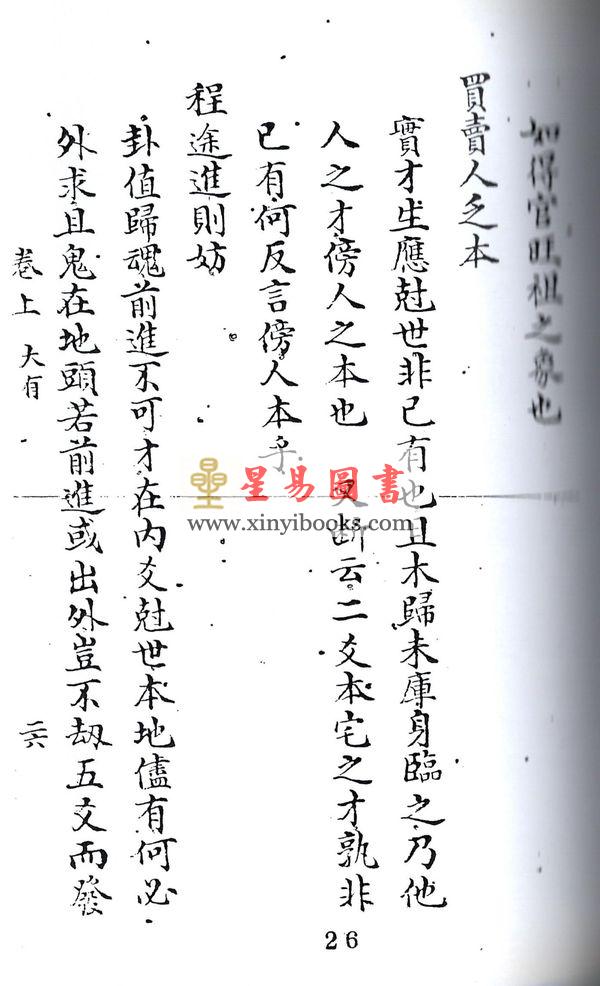 如得官旺祖之象也
買賣人乏本
實才生應尅世非己有也且木歸未庫身臨之乃他
人之才傍人之本也 又斷云二爻本宅之才孰非
已有何反言傍人本乎
程途進則妨
卦值歸魂前進不可才在內爻尅世本地儘有何必
外求且鬼在地頭若前進或出外豈不劫五爻而發
卷上 大有 二六
26
星易圖書
www.xinyibooks.com